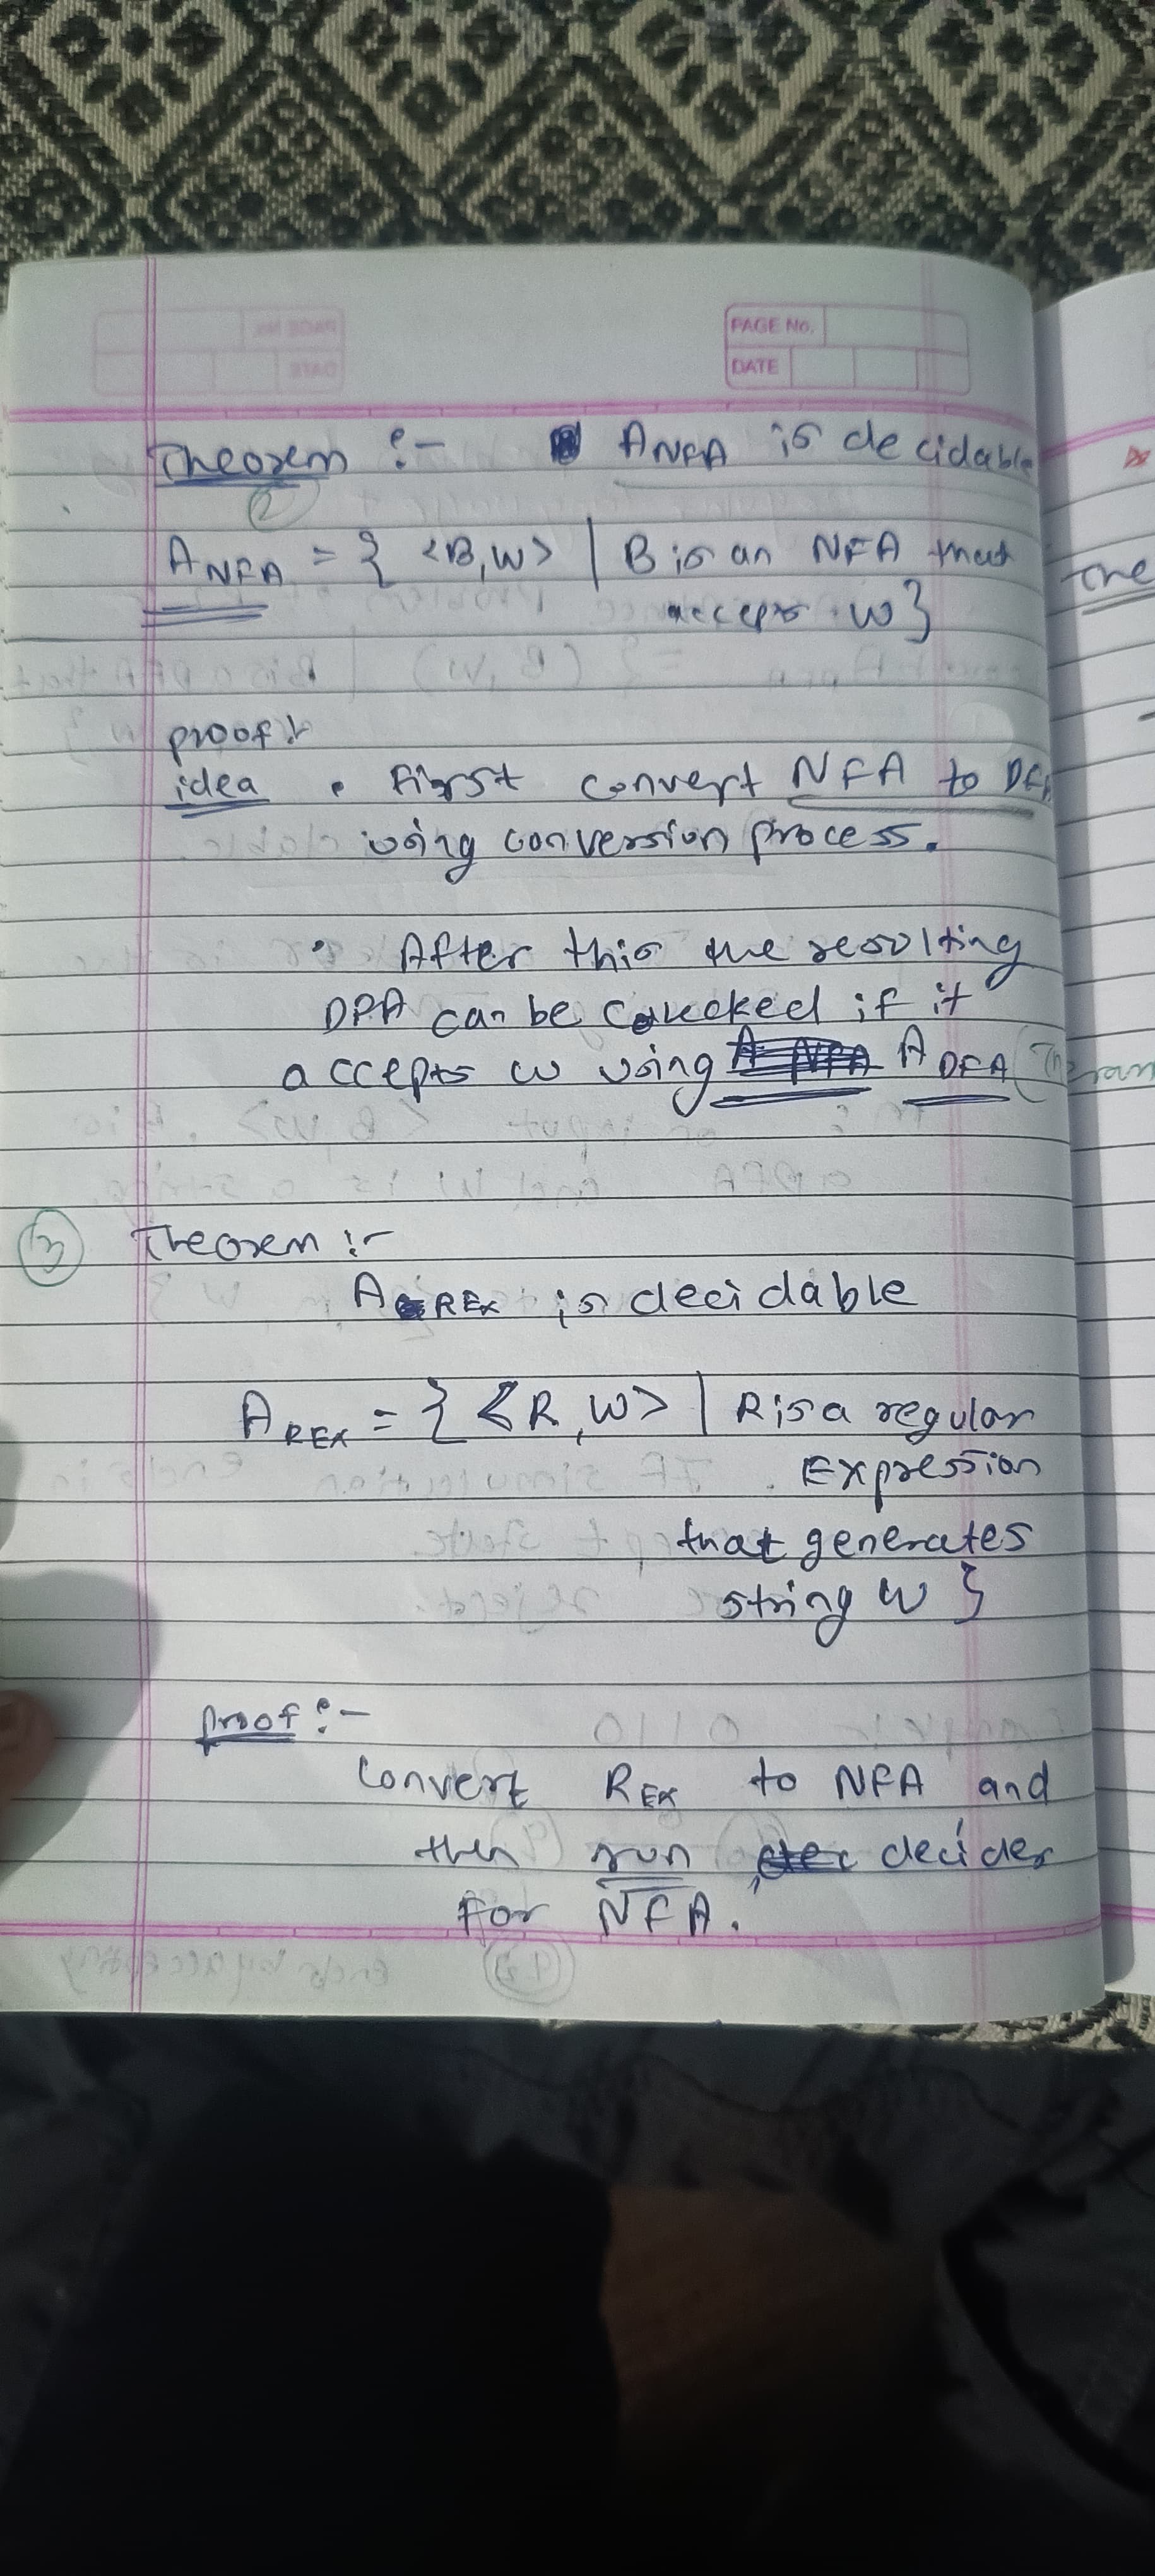 PAGE No.
DATE
Theorem :- A NFA is decidable
2
A NFA = { <B,W> | B is an NFA that
accepts w}
proof :-
idea • First convert NFA to DFA
using conversion process.
• After this the resulting
DFA can be checked if it
accepts w using A DFA
3 Theorem :-
A REX is decidable
A REX = { <R, W> | R is a regular
Expression
that generates
string w }
proof :-
Convert REX to NFA and
then run decider
for NFA.
The